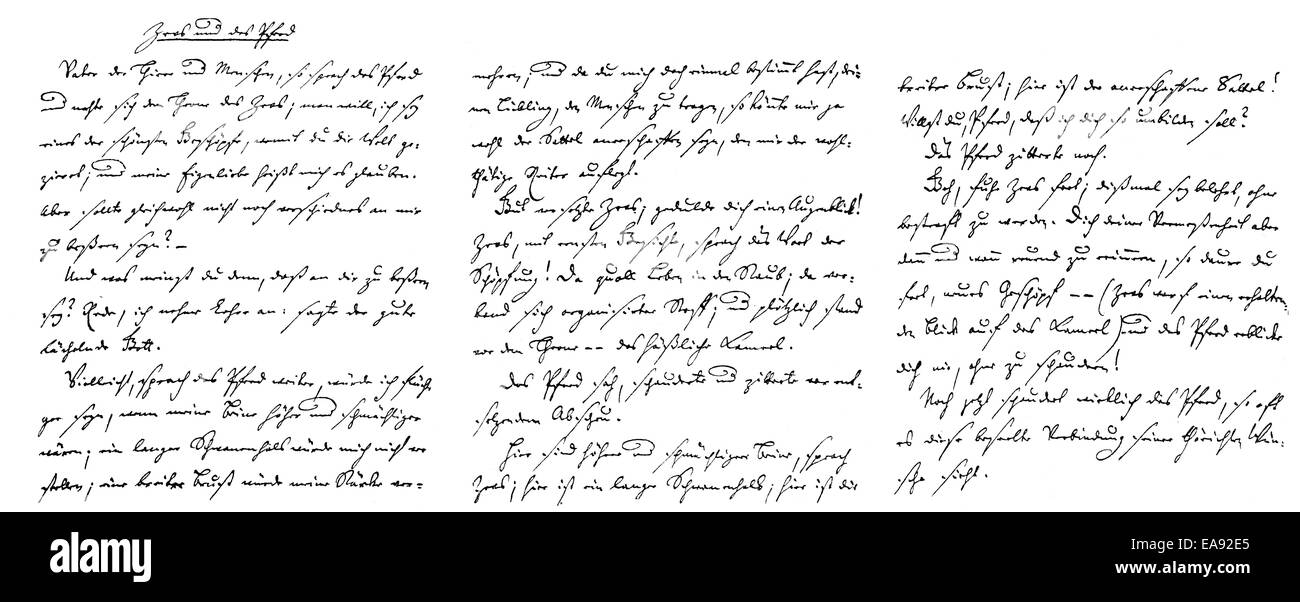 Zevs und das Pferd
Vater der Thiere und Menschen, so sprach das Pferd
und nahte sich dem Throne des Zevs; man will, ich sey
eines der schönsten Geschöpfe, womit du die Welt ge-
zieret; und meine Eigenliebe heißt mich es glauben.
Aber sollte gleichwohl nicht noch verschiednes an mir
zu beßern seyn? –
Und was meinst du denn, daß an dir zu beßern
sey? Rede; ich nehme Lehre an: sagte der gute
lächelnde Gott.
Vielleicht, sprach das Pferd weiter, würde ich flüchti-
ger seyn, wenn meine Beine höher und schmächtiger
wären; ein langer Schwanenhals würde mich nicht ver-
stellen; eine breitere Brust würde meine Stärke ver-
mehren; und da du mich doch einmal bestimmt hast, dei-
nen Liebling, den Menschen zu tragen, so könnte mir ja
wohl der Sattel anerschaffen seyn, den mir der wohl-
thätige Reiter auflegt.
Gut versetzte Zevs; gedulde dich einen Augenblick!
Zevs, mit ernstem Gesichte, sprach das Wort der
Schöpfung! Da quoll Leben in den Staub; da ver-
band sich organisirter Stoff; und plötzlich stand
vor dem Throne –– das häßliche Kameel.
Das Pferd sah, schauderte und zitterte vor ent-
setzendem Abscheu.
Hier sind höhere und schmächtigere Beine, sprach
Zevs; hier ist ein langer Schwanenhals; hier ist die
breitre Brust; hier ist der anerschaffene Sattel!
Willst du, Pferd, daß ich dich so umbilden soll?
Das Pferd zitterte noch.
Geh, fuhr Zevs fort; dießmal sey belehrt, ohne
bestraft zu werden. Dich deiner Vermeßenheit aber
dann und wann reuend zu erinnern, so daure du
fort, neues Geschöpf –– (Zevs warf einen erhalten-
den Blick auf das Kameel) und das Pferd erblicke
dich nie, ohne zu schaudern!
Noch jetzt schaudert wirklich das Pferd, so oft
es diese beseelte Verbindung seiner thörichten Wün-
sche sieht.
alamy
alamy stock photo
EA92E5
www.alamy.com